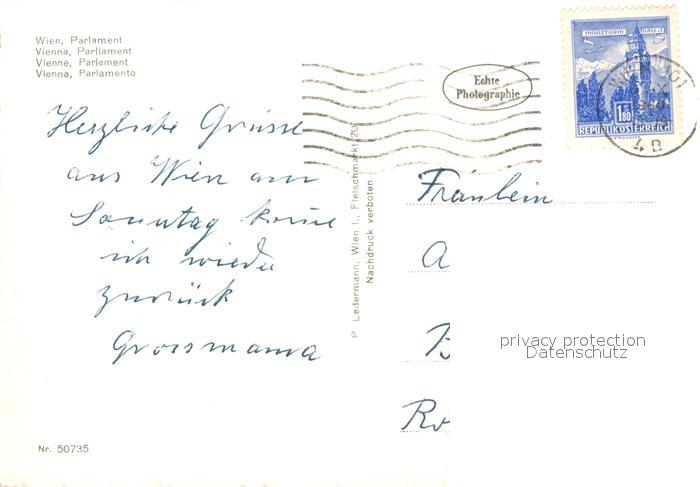 Wien, Parlament
Vienna, Parliament
Vienne, Parlement
Vienna, Parlamento
Echte
Photographie
MÜNZTURM HALL i. T.
1.80
REPUBLIK ÖSTERREICH
4 B
Herzliche Grüsse
aus Wien am
Sonntag komme
ich wieder
zurück
Grossmama
P. Ledermann, Wien I., Fleischmarkt 20
Nachdruck verboten
Fräulein
A
Ro
privacy protection
Datenschutz
Nr. 50735